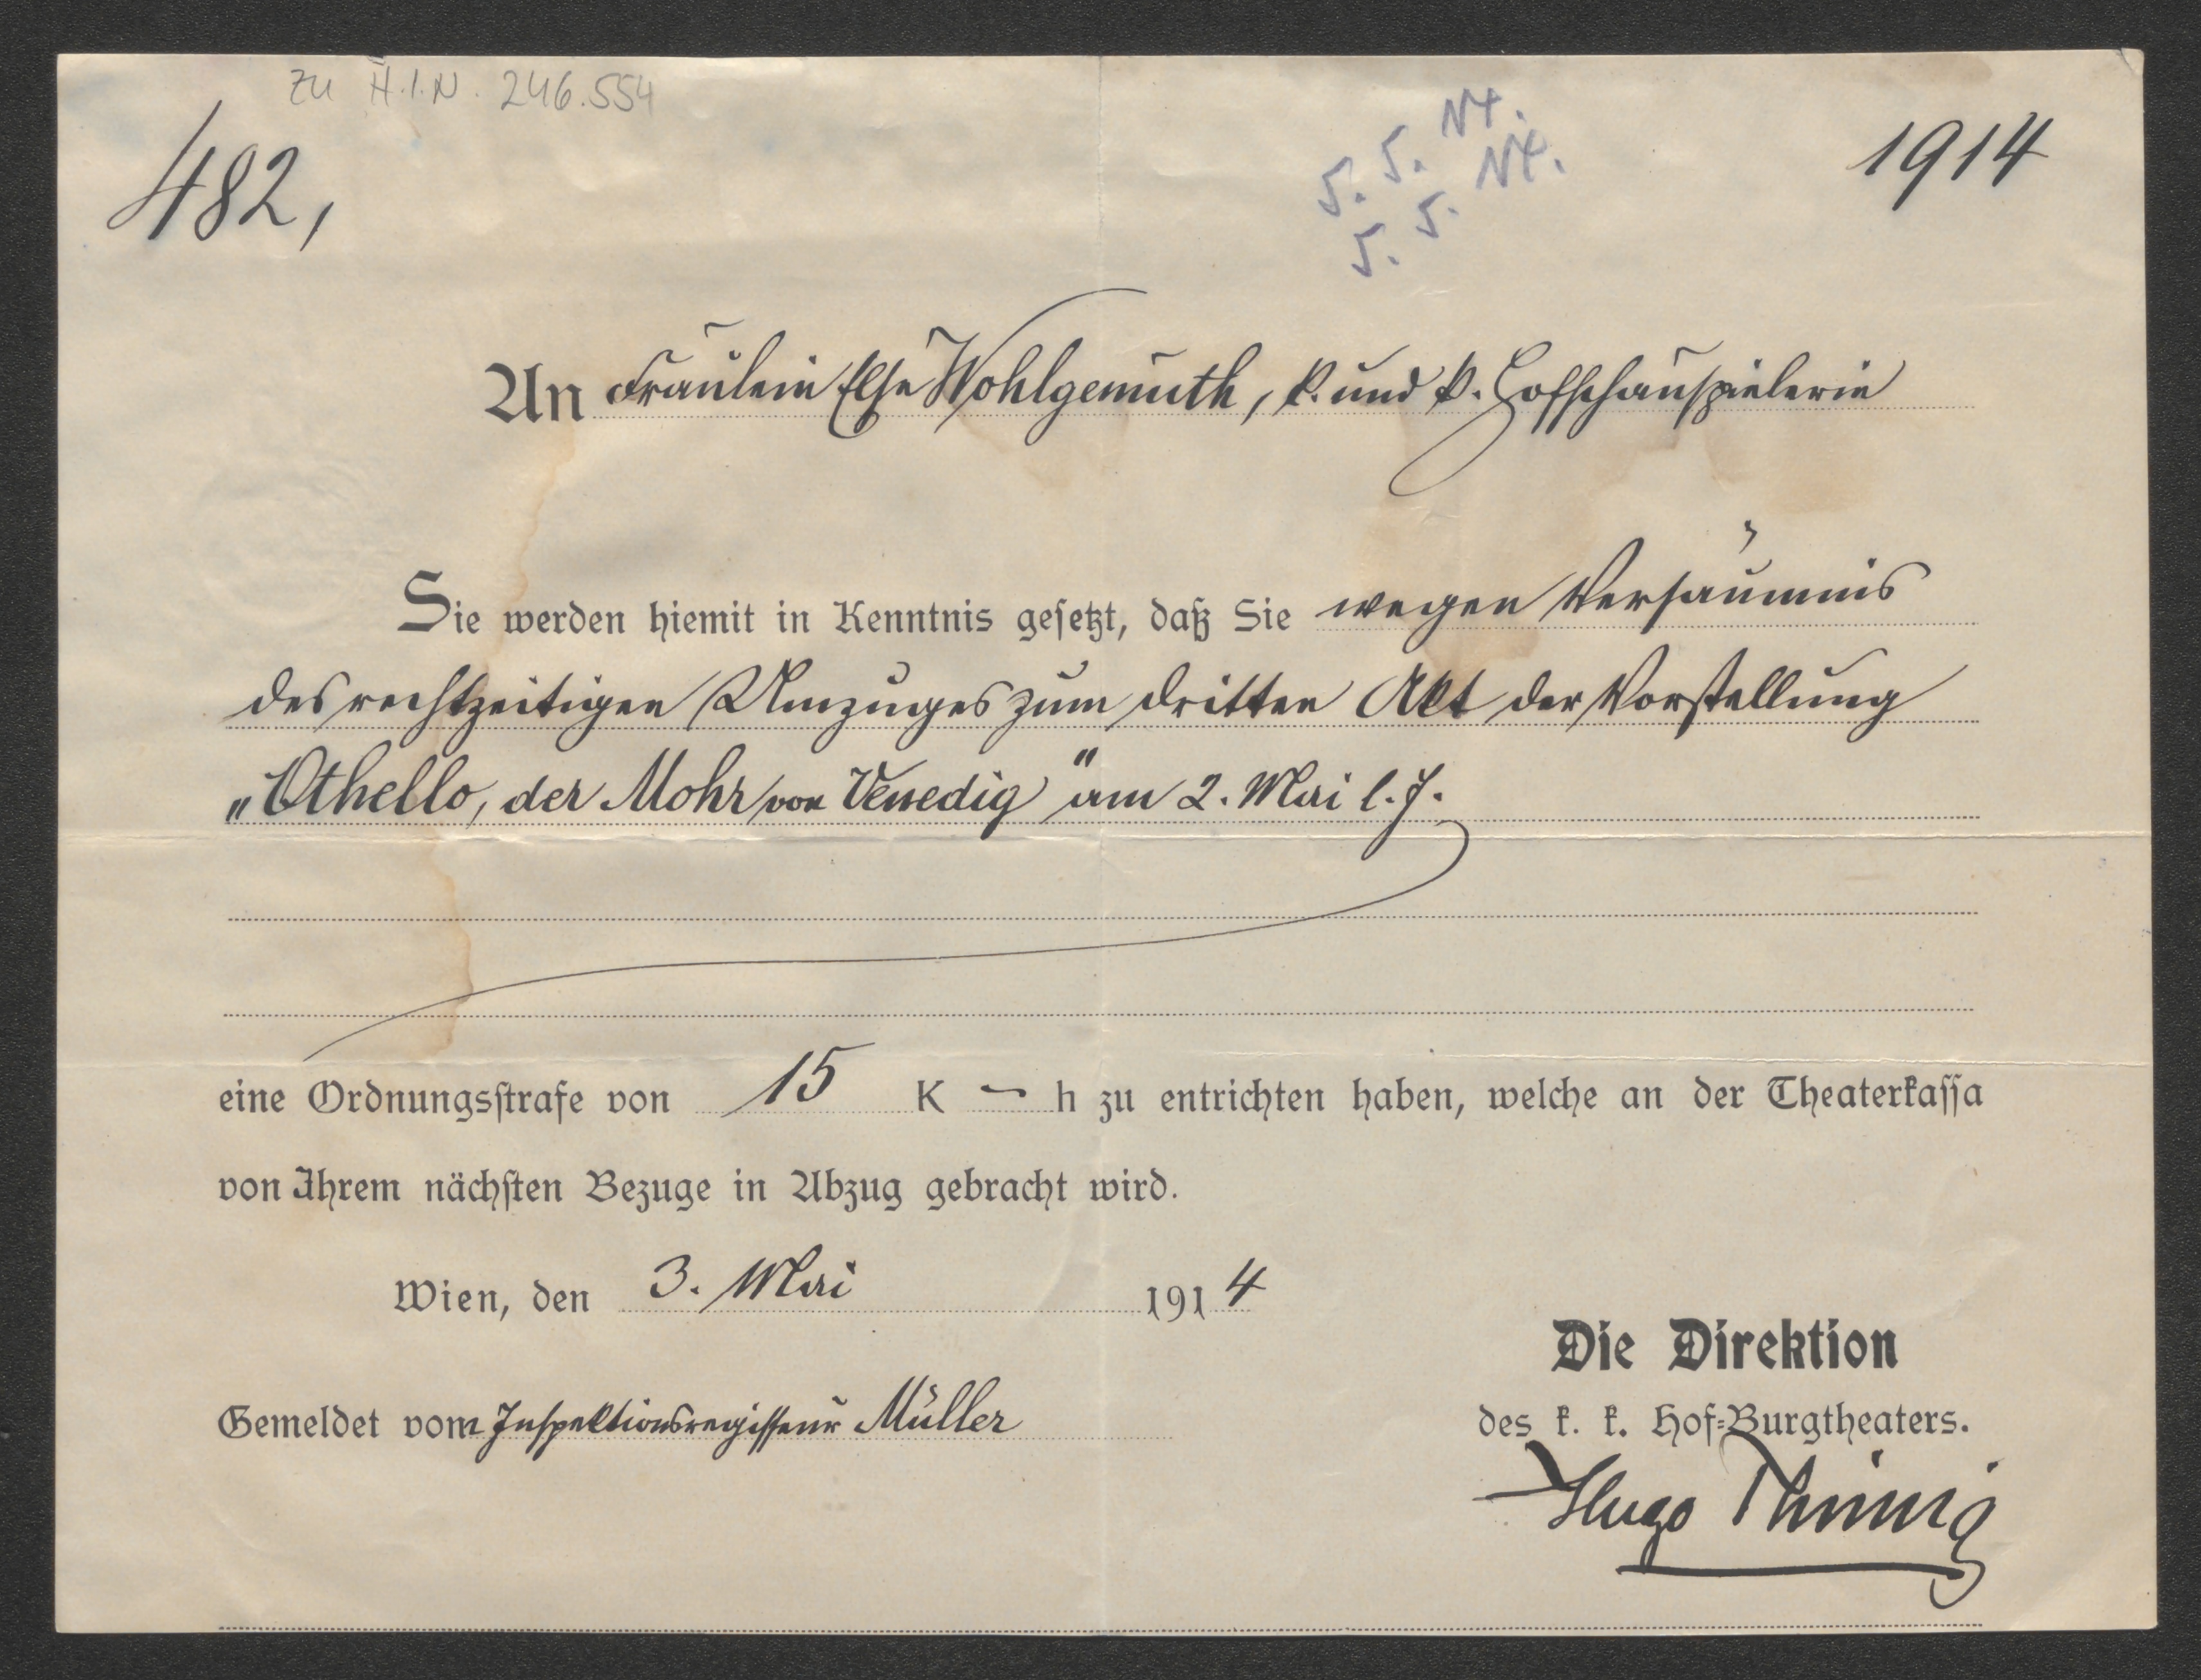 zu H.I.N. 246.554
482,
5. 5. Nt.
5. 5. Nt.
1914
An Fräulein Else Wohlgemuth, k. und k. Hofschauspielerin
Sie werden hiemit in Kenntnis gesetzt, daß Sie wegen Versäumnis
des rechtzeitigen Umzuges zum dritten Akt der Vorstellung
„Othello, der Mohr von Venedig" am 2. Mai l. J.
eine Ordnungsstrafe von 15 K — h zu entrichten haben, welche an der Theaterkassa
von Ihrem nächsten Bezuge in Abzug gebracht wird.
Wien, den 3. Mai 1914
Die Direktion
des k. k. Hof-Burgtheaters.
Gemeldet vom Inspektionsregisseur Müller
Hugo Thimig